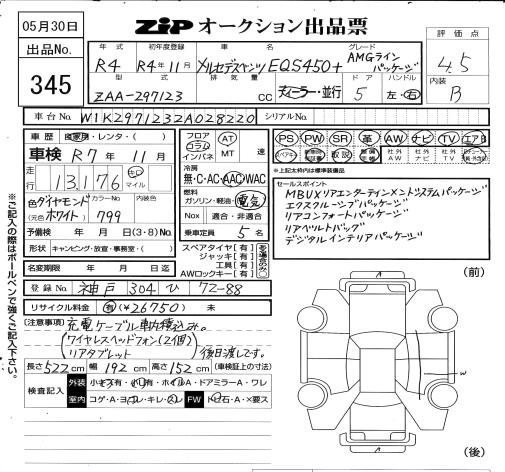 05月30日
ZIP オークション出品票
評価点
4.5
内装
B
出品No.
345
年式 初年度登録 車名 グレード
R4 R4年11月 メルセデスベンツ EQS450+ AMGラインパッケージ
型式 排気量 ドア ハンドル
ZAA-297123 cc 5 左・右
車台No. W1K2971232A028220 シリアルNo.
車歴 自家用・レンタ・( )
車検 R7年11月
走行 13,176 キロ マイル
色 ダイヤモンド カラーNo 内装色
(元色 ホワイト) 799
予備検 年 月 日 (3・8)No.
形状 キャンピング・放宣・事務室・( )
名変期限 年 月 日迄
フロア コラム インパネ AT MT 速
冷房 無・C・AC・AAC・WAC
燃料 ガソリン・軽油・電気
Nox 適合・非適合
乗車定員 5 名
スペアタイヤ [有]
ジャッキ [有]
工具 [有]
AWロックキー [有]
PS PW SR 革 AW ナビ TV エアB
スペアキー 取説 社外AW 社外ナビ 社外TV
※上記太わくは標準装備品
セールスポイント
MBUXリアエンターテインメントシステムパッケージ
エクスクルーシブパッケージ
リアコンフォートパッケージ
リアベルトバッグ
デジタルインテリアパッケージ
登録No. 神戸 304 ひ 72-88
リサイクル料金 有 (¥26750) 未
(注意事項) 充電ケーブル車内積込み。
(ワイヤレスヘッドフォン(2個)
リアタブレット) 後日渡しです。
長さ 522 cm 幅 192 cm 高さ 152 cm (車検証上の寸法)
検査記入 外装 小キズ有・小凹有・ホイルA・ドアミラーA・ワレ
室内 コゲ・A・ヨゴレ・キレ・スレ FW トビ石・A・×要ス
※ご記入の際はボールペンで強くご記入下さい。
(前)
A
W
A
(後)